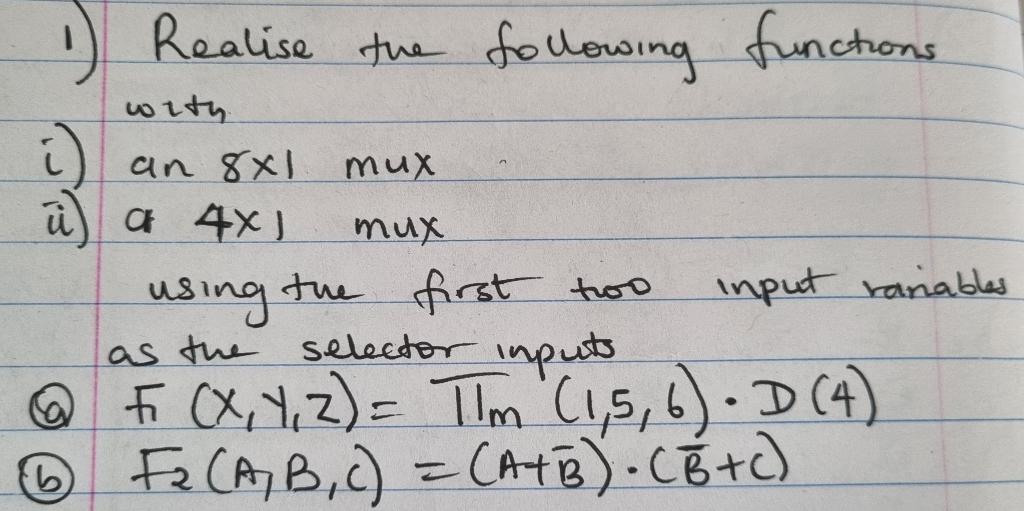 1) Realise the following functions
with
i) an 8x1 mux
ii) a 4x1 mux
using the first two input variables
as the selector inputs
ⓐ F1 (X,Y,Z) = Πm (1,5,6) · D(4)
ⓑ F2 (A,B,C) = (A+B̅)·(B̅+C)